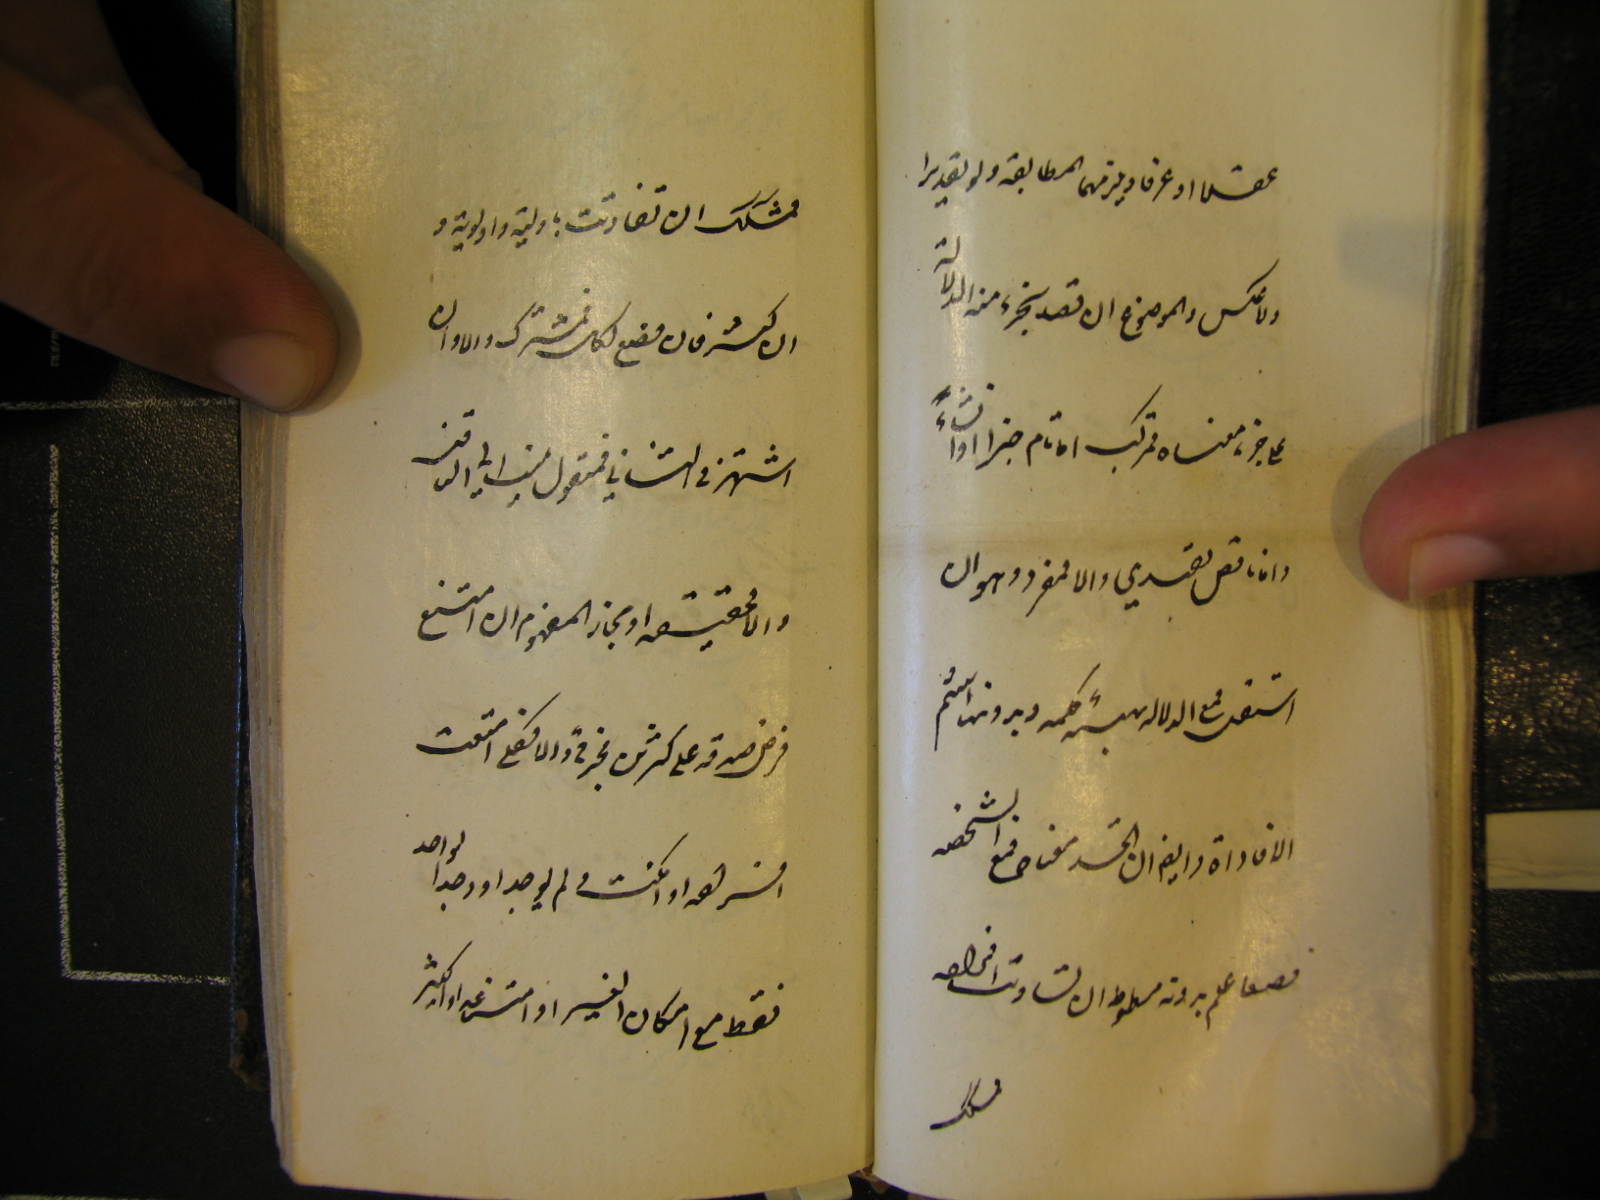 عقلا او عرفا ويلزمهما المطابقة ولو تقديرا
ولا عكس والموضوع ان قصد بجزء منه الدلالة
على جزء معناه فمركب اما تام خبر او انشاء
واما ناقص تقييدي والا فمفرد وهو ان
استقل فمع الدلالة بهيئته كلمة وبدونها اسم
والا فاداة وايضا ان اتحد معناه فمع تشخصه
وضعا علم وبدونه متواط ان تساوت افراده
مشكك
مشكك ان تفاوتت باولية واولوية و
ان كثر فان وضع لكل فمشترك والا فان
اشتهر في الثاني فمنقول ينسب الى الناقل
والا فحقيقة او مجاز المفهوم ان امتنع
فرض صدقه على كثيرين فجزئي والا فكلي امتنعت
افراده او امكنت ولم يوجد او وجد الواحد
فقط مع امكان الغير او امتناعه او الكثير